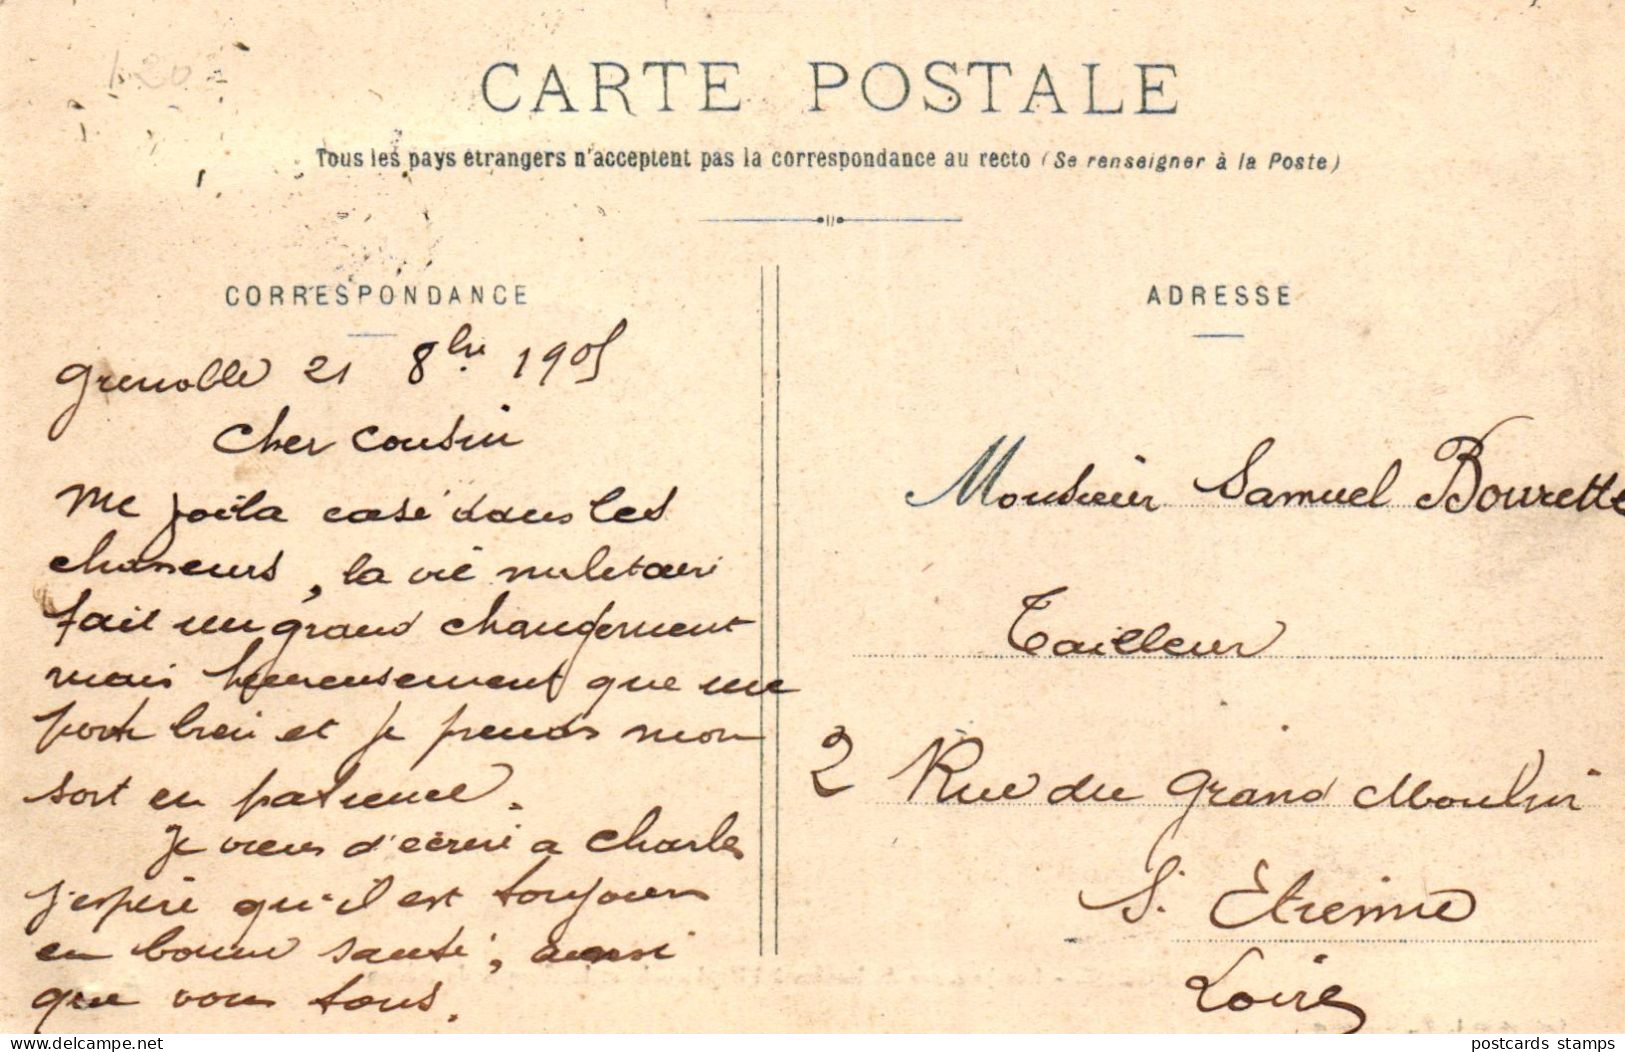 1.20
CARTE POSTALE
Tous les pays étrangers n'acceptent pas la correspondance au recto (Se renseigner à la Poste)
CORRESPONDANCE
Grenoble 21 8bre 1905
Cher Cousin
Me voila casé dans les
chasseurs, la vie militaire
fait un grand changement
mais heureusement que me
porte bien et je prends mon
sort en patience.
Je viens d'écrire a Charles
j'espère qu'il est toujours
en bonne santé, ainsi
que vous tous.
ADRESSE
Monsieur Samuel Bourette
Tailleur
2 Rue du Grand Moulin
St. Etienne
Loire
postcards stamps